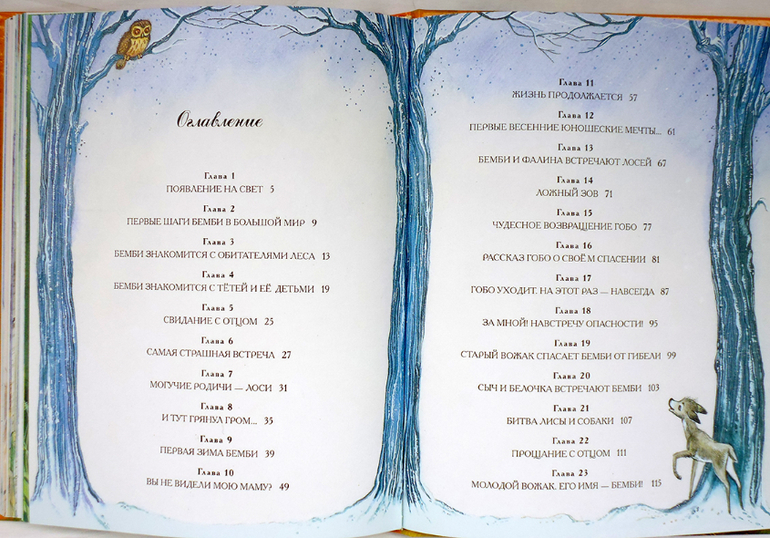 Оглавление
Глава 1
ПОЯВЛЕНИЕ НА СВЕТ 5
Глава 2
ПЕРВЫЕ ШАГИ БЕМБИ В БОЛЬШОЙ МИР 9
Глава 3
БЕМБИ ЗНАКОМИТСЯ С ОБИТАТЕЛЯМИ ЛЕСА 13
Глава 4
БЕМБИ ЗНАКОМИТСЯ С ТЁТЕЙ И ЕЁ ДЕТЬМИ 19
Глава 5
СВИДАНИЕ С ОТЦОМ 25
Глава 6
САМАЯ СТРАШНАЯ ВСТРЕЧА 27
Глава 7
МОГУЧИЕ РОДИЧИ — ЛОСИ 31
Глава 8
И ТУТ ГРЯНУЛ ГРОМ... 35
Глава 9
ПЕРВАЯ ЗИМА БЕМБИ 39
Глава 10
ВЫ НЕ ВИДЕЛИ МОЮ МАМУ? 49
Глава 11
ЖИЗНЬ ПРОДОЛЖАЕТСЯ 57
Глава 12
ПЕРВЫЕ ВЕСЕННИЕ ЮНОШЕСКИЕ МЕЧТЫ... 61
Глава 13
БЕМБИ И ФАЛИНА ВСТРЕЧАЮТ ЛОСЕЙ 67
Глава 14
ЛОЖНЫЙ ЗОВ 71
Глава 15
ЧУДЕСНОЕ ВОЗВРАЩЕНИЕ ГОБО 77
Глава 16
РАССКАЗ ГОБО О СВОЁМ СПАСЕНИИ 81
Глава 17
ГОБО УХОДИТ. НА ЭТОТ РАЗ — НАВСЕГДА 87
Глава 18
ЗА МНОЙ! НАВСТРЕЧУ ОПАСНОСТИ! 95
Глава 19
СТАРЫЙ ВОЖАК СПАСАЕТ БЕМБИ ОТ ГИБЕЛИ 99
Глава 20
СЫЧ И БЕЛОЧКА ВСТРЕЧАЮТ БЕМБИ 103
Глава 21
БИТВА ЛИСЫ И СОБАКИ 107
Глава 22
ПРОЩАНИЕ С ОТЦОМ 111
Глава 23
МОЛОДОЙ ВОЖАК. ЕГО ИМЯ — БЕМБИ! 115